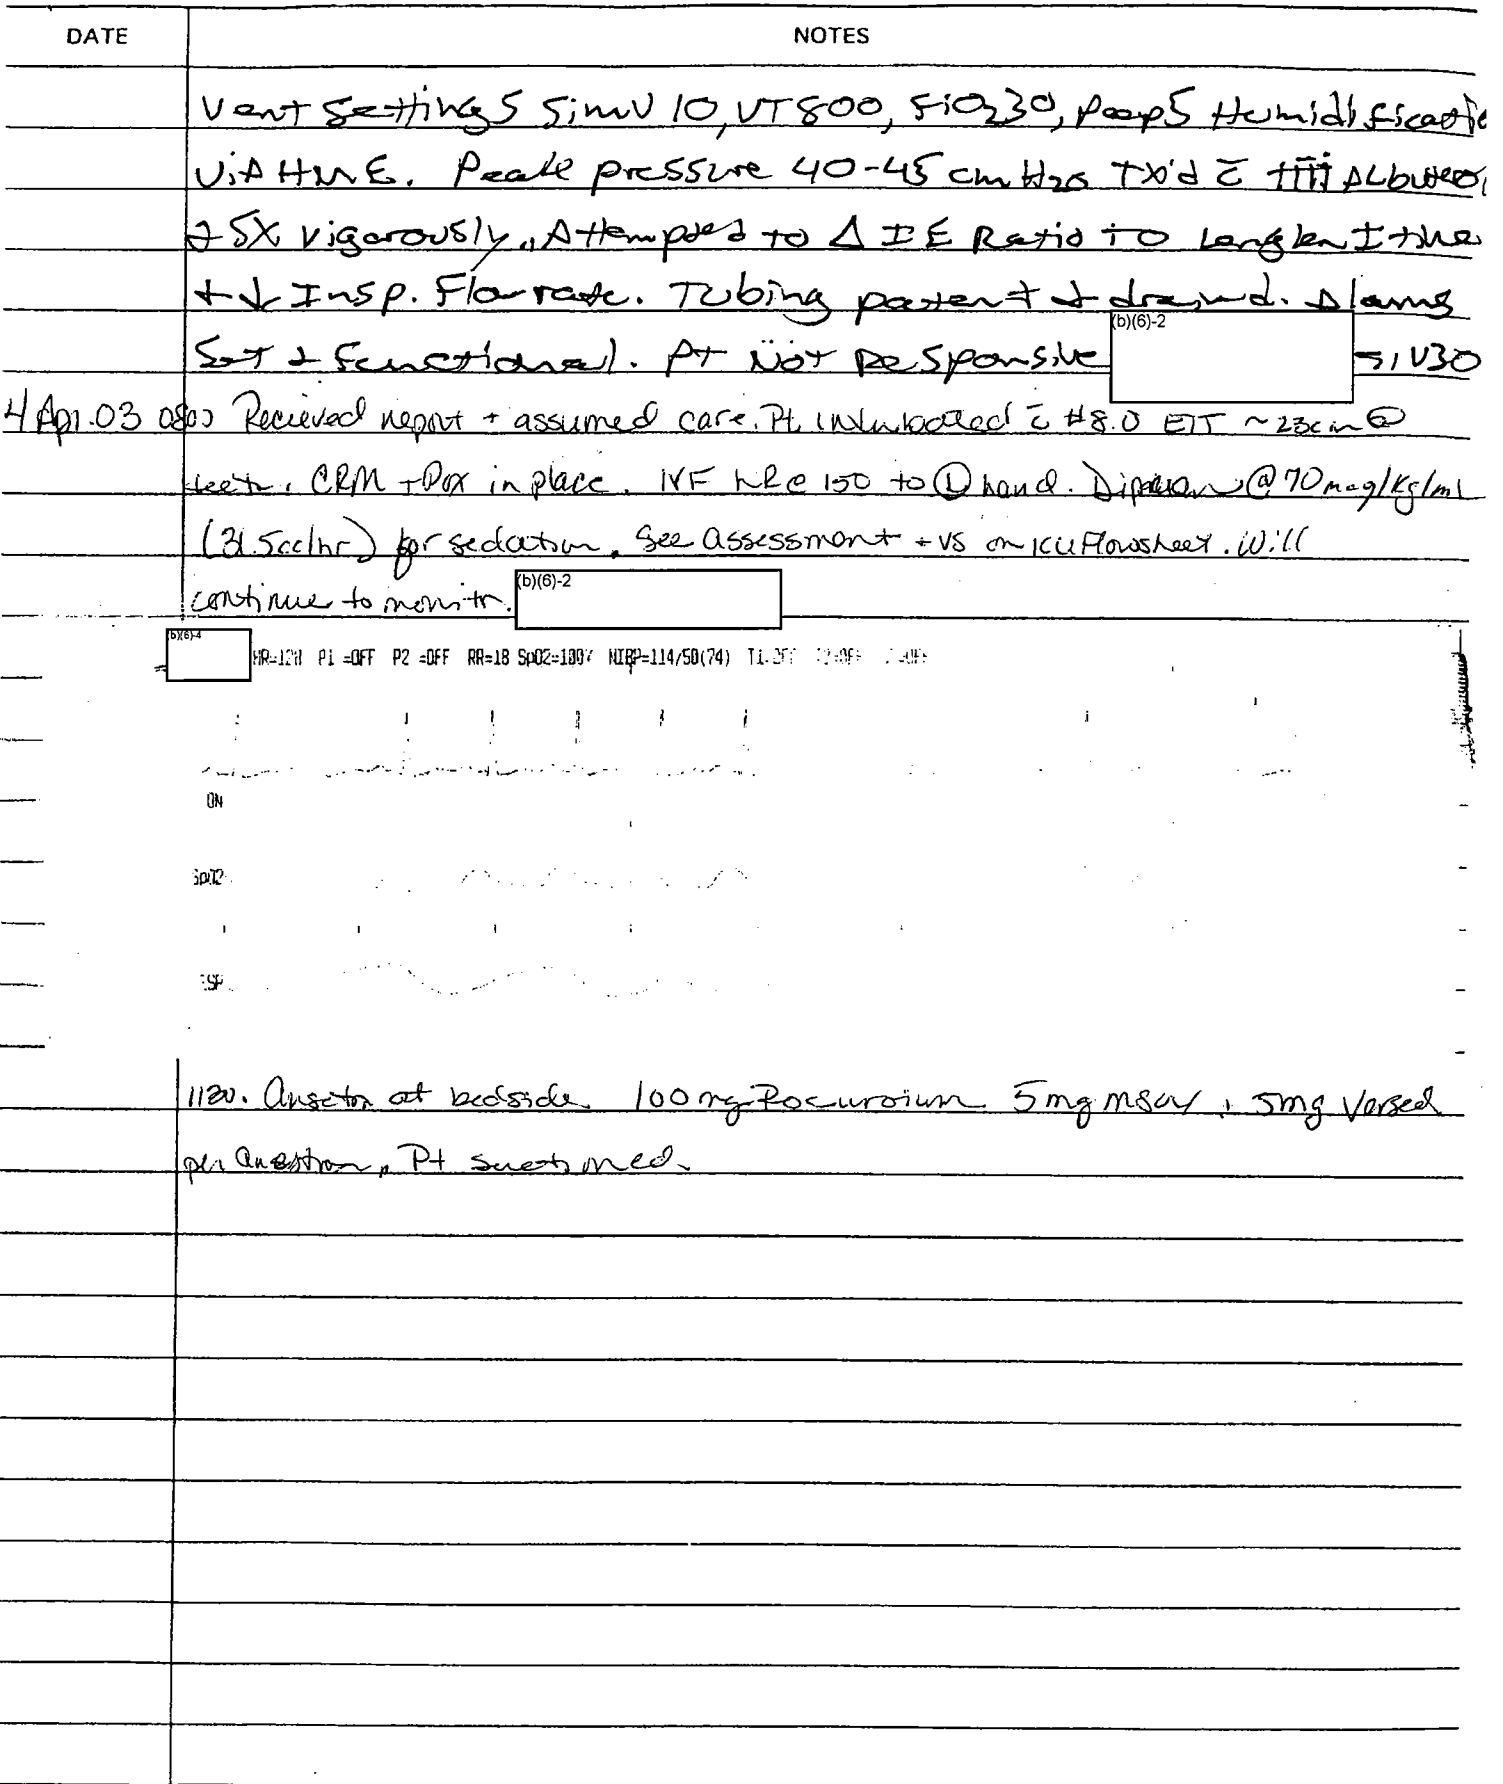 DATE NOTES
Vent Settings SimV 10, VT 800, FiO2 30, Peep 5 Humidificatio
ViA HME. Peak pressure 40-45 cm H2O TX'd c̄ Albuterol
+ SX vigorously. Attempted to Δ IE Ratio To Lengthen I time
+ ↓ Insp. Flow rate. Tubing patent + drained. Alarms
Set + Functional. Pt Not Responsive (b)(6)-2
4 Apr. 03 0800 Recieved report + assumed care. Pt. intubated c̄ #8.0 ETT ~23cm @
teeth. CRM + Pox in place. IVF LR @ 150 to (L) hand. Diprivan @ 70 mcg/kg/ml
(31.5cc/hr) for sedation. See assessment + VS on ICU Flowsheet. Will
continue to monitor. (b)(6)-2
(b)(6)-4 P1 =OFF P2 =OFF RR=18 SpO2=100% NIBP=114/50(74) T1=OFF T2=OFF
ON
SpO2
1120. at bedside 100 mg Rocuronium 5mg MSO4, 5mg Versed
per Pt suctioned.